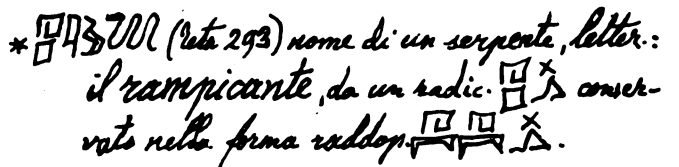 * (Teta 293) nome di un serpente, letter.:
il rampicante, da un radic. conser-
vato nella forma raddop. .